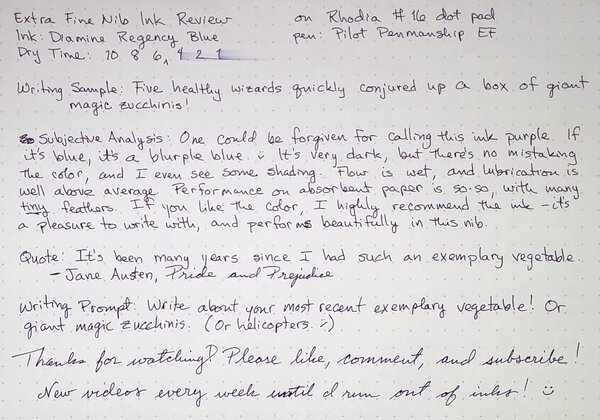 Extra Fine Nib Ink Review on Rhodia #16 dot pad
Ink: Diamine Regency Blue pen: Pilot Penmanship EF
Dry Time: 10 8 6 4 2 1
Writing Sample: Five healthy wizards quickly conjured up a box of giant
magic zucchinis!
Subjective Analysis: One could be forgiven for calling this ink purple. If
it's blue, it's a blurple blue. :) It's very dark, but there's no mistaking
the color, and I even see some shading. Flow is wet, and lubrication is
well above average. Performance on absorbent paper is so-so, with many
tiny feathers. If you like the color, I highly recommend the ink - it's
a pleasure to write with, and performs beautifully in this nib.
Quote: It's been many years since I had such an exemplary vegetable.
- Jane Austen, Pride and Prejudice
Writing Prompt: Write about your most recent exemplary vegetable! Or
giant magic zucchinis. (Or helicopters. :)
Thanks for watching! Please like, comment, and subscribe!
New videos every week until I run out of inks! :)